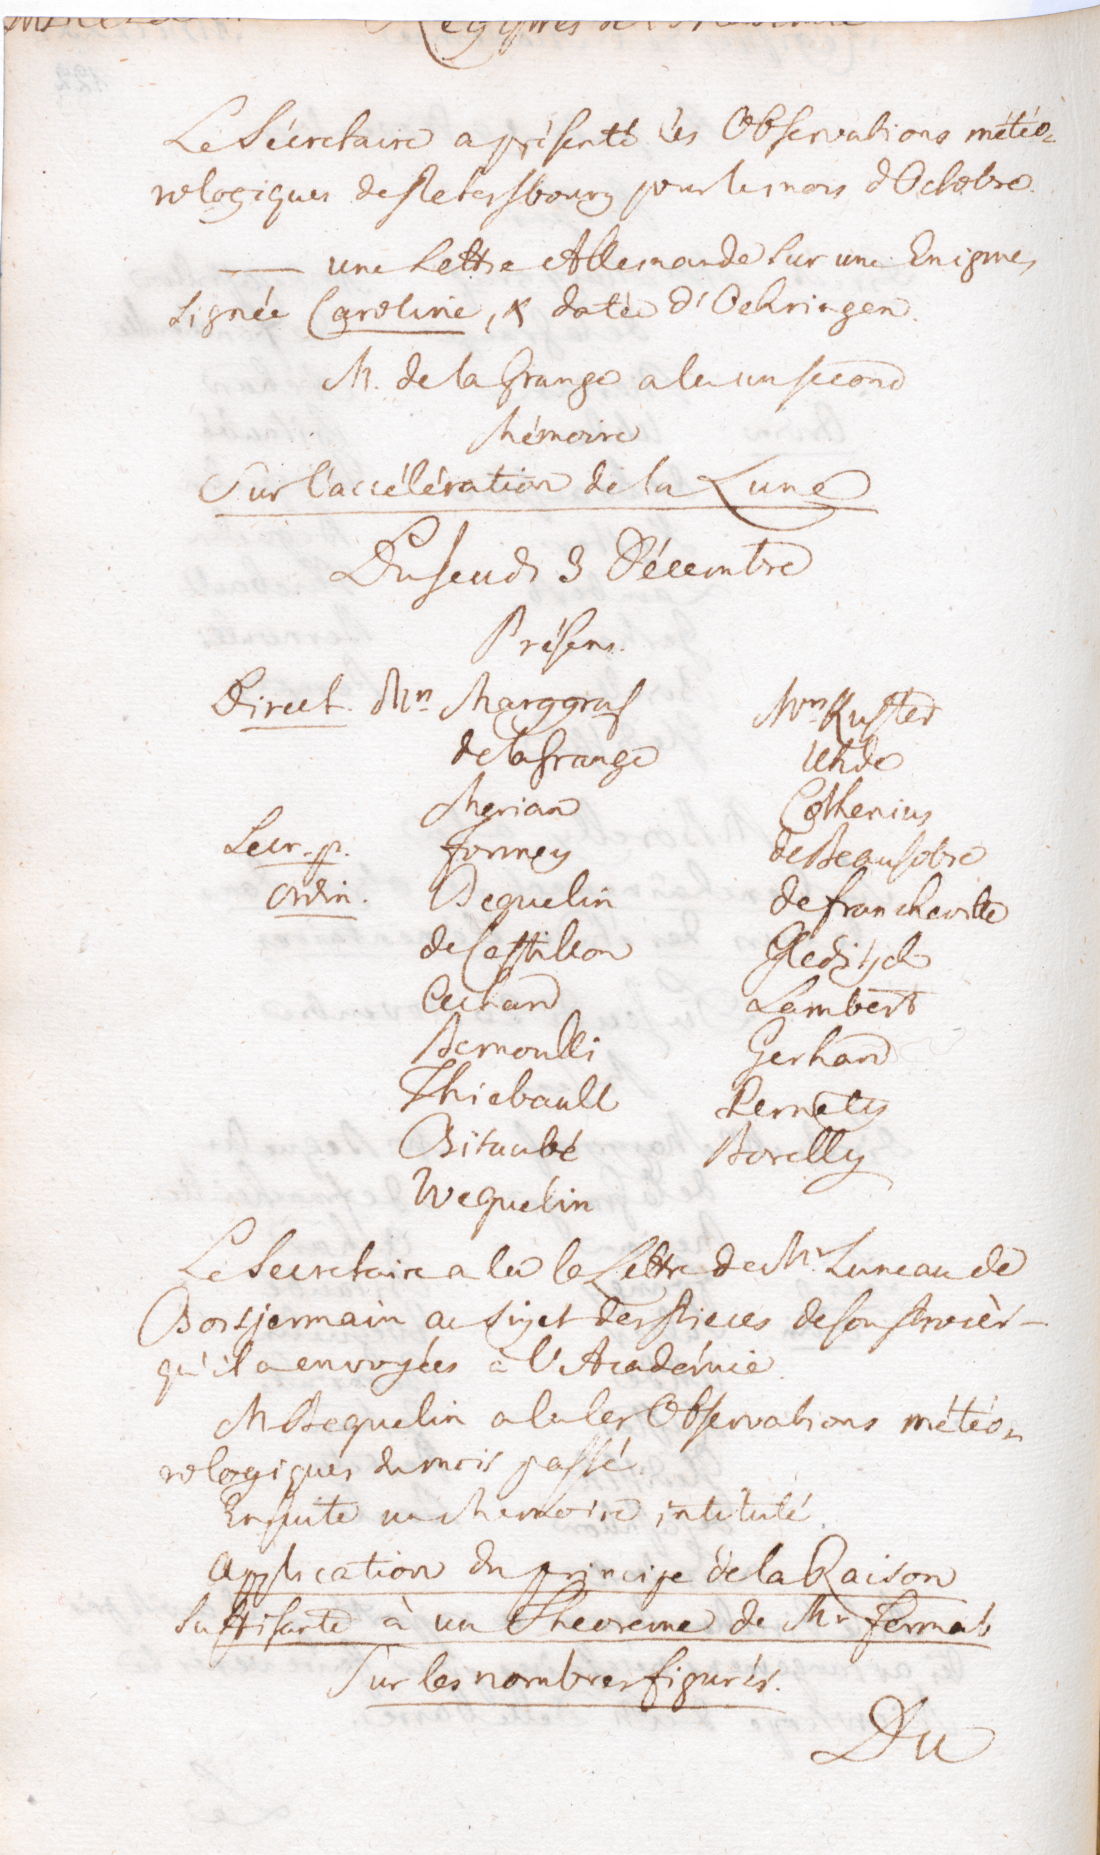 Registres de l'Académie
Le Sécretaire a présenté les Observations météo-
rologiques de Petersbourg pour le mois d'Octobre.
—— une Lettre Allemande sur une Enigme,
signée Caroline, & datée d'Oehringen.
M. de la Grange a lu un second
Mémoire
Sur l'accélération de la Lune
Du Jeudi 3 Décembre
Présens.
Direct. Mrs Marggraf Mrs Kuster
de la Grange Uhde
Merian Cothenius
Secr. p. Formey de Beausobre
Ordin. Beguelin de Francheville
de Castillon Gleditsch
Achard Lambert
Bernoulli Gerhard
Thiebault Pernety
Bitaubé Borelly
Weguelin
Le Secretaire a lu la Lettre de Mr. Luneau de
Boisjermain au sujet des pieces de son procès
qu'il a envoyées à l'Académie.
M Beguelin a lu les Observations météo-
rologiques du mois passé.
Ensuite un Memoire intitulé.
Application du principe de la Raison
suffisante à un Theoreme de Mr Fermat
Sur les nombres figurés.
Du